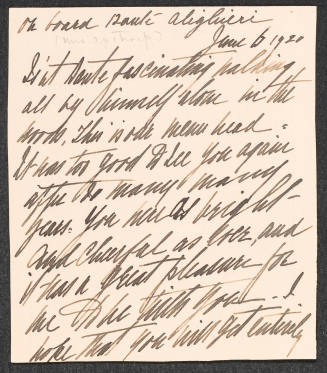 On board Dante Alighieri
June 6 1920
Isn't Dante fascinating walking
all by himself alone in the
woods. This is our menu head -
It was too good to see you again
after so many many
years - You were as bright -
and cheerful as ever, and
it was a great pleasure for
me to be with you - I
hope that you will get entirely